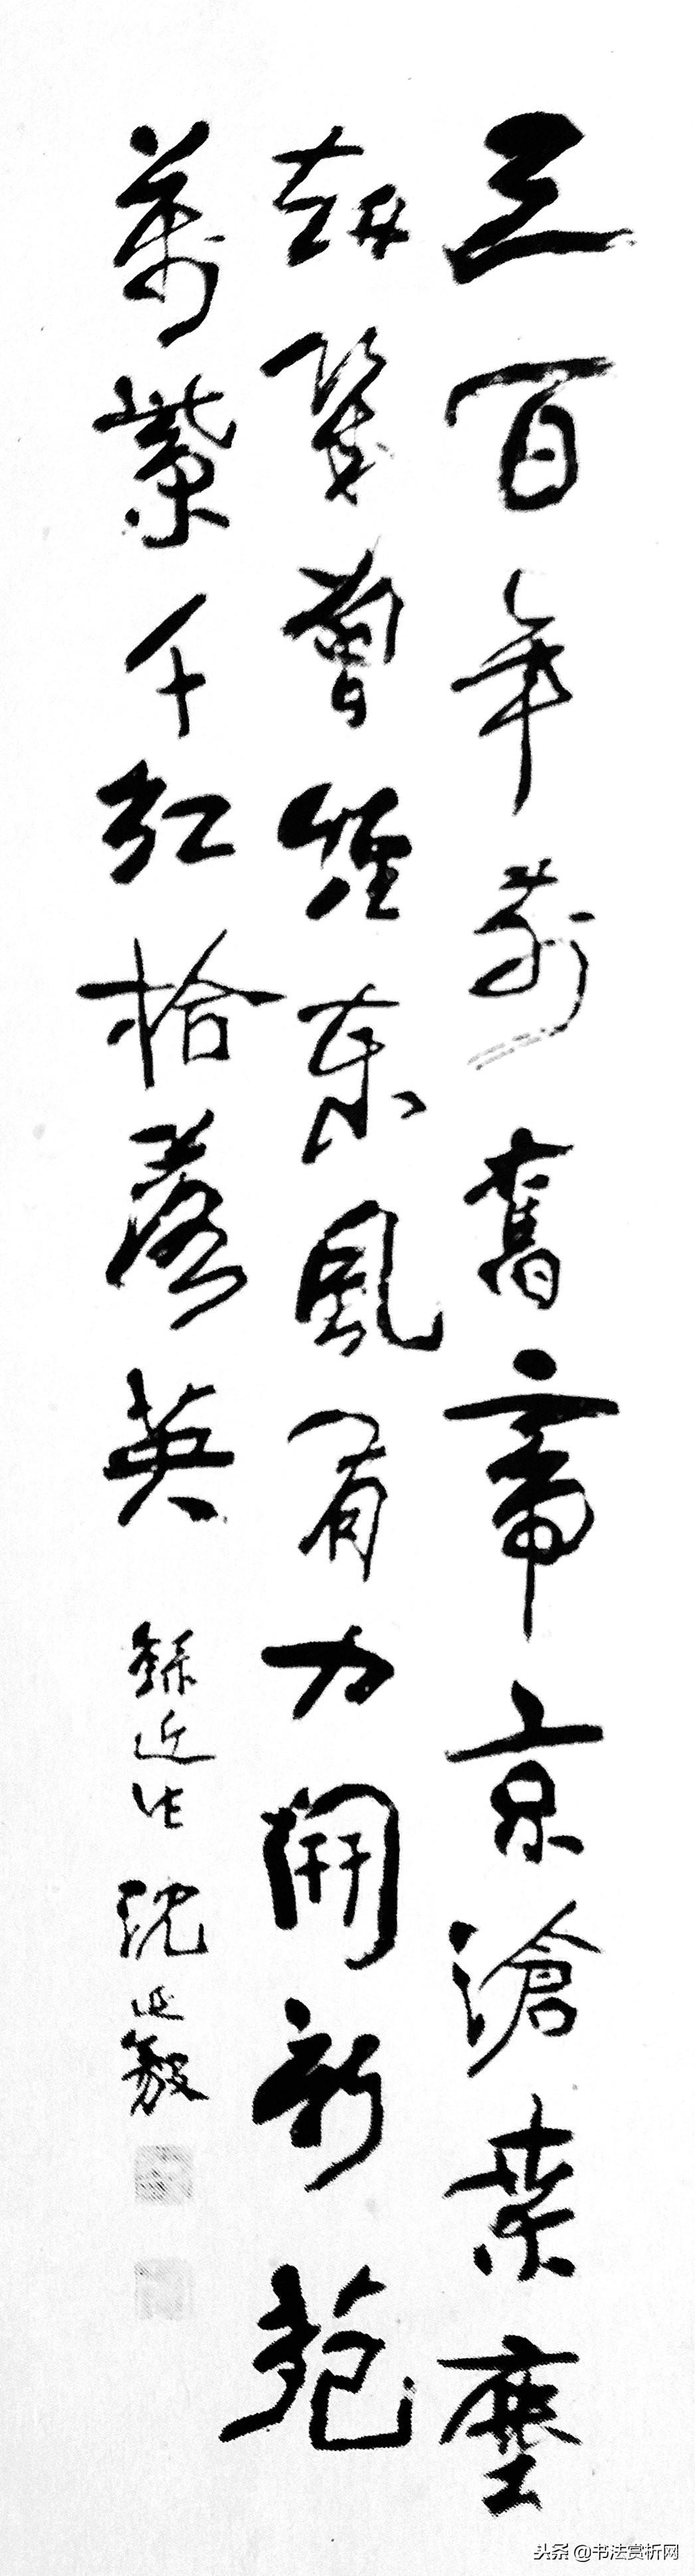 三百年前舊帝京滄桑塵
劫幾曾經東風有力開新苑
萬紫千紅拾落英 錄近作 沈延毅
头条 @书法赏析网